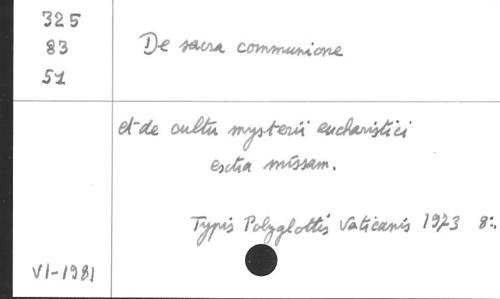 325
83
51
De sacra communione
et de cultu mysterii eucharistici
extra missam.
Typis Polyglottis Vaticanis 1973 8:.
VI-1981